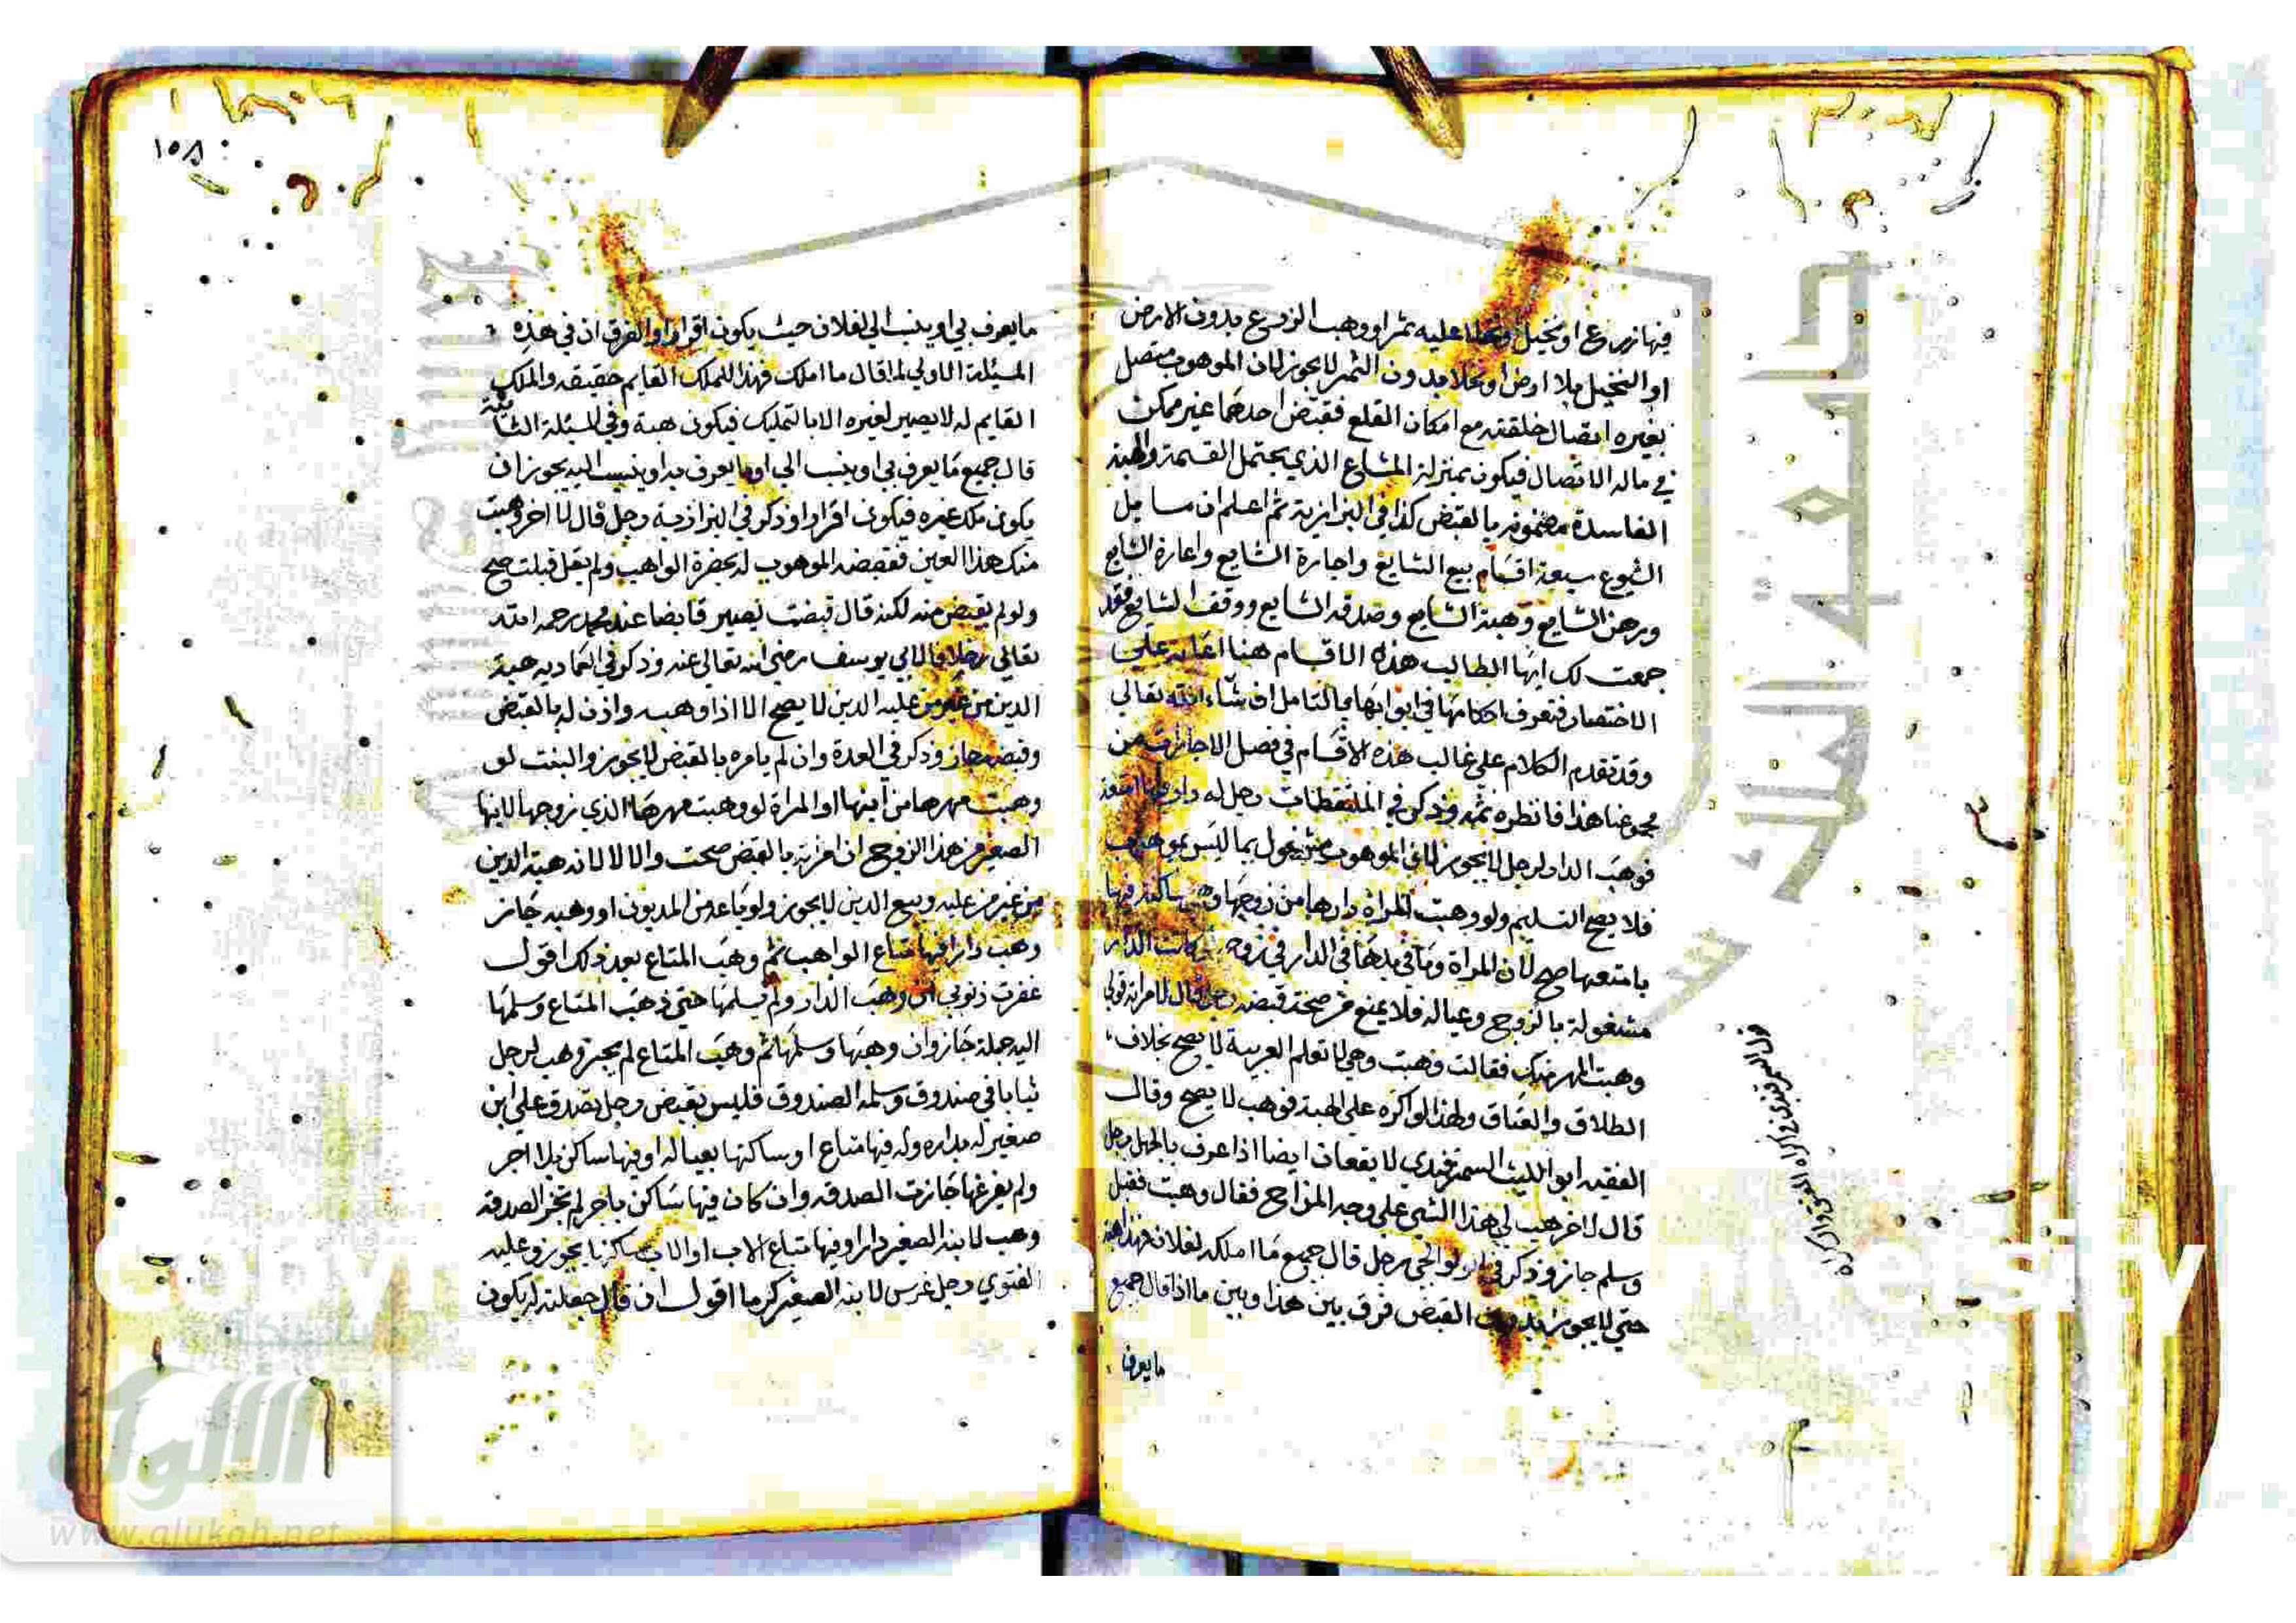 فيها زرع او نخيل ونخلا عليه ثمر او وهب الزرع بدون الارض
او النخيل بلا ارض او نخلا بدون الثمر لا يجوز لان الموهوب متصل
بغيره اتصال خلقته مع امكان القلع فقبض احدهما غير ممكن
في حالة الاتصال فيكون بمنزلة المشاع الذي يحتمل القسمة والهبة
الفاسدة مضمونة بالقبض كذا في البزازية ثم اعلم ان مسايل
الشيوع سبعة اقسام بيع الشايع واجارة الشايع واعارة الشايع
ورهن الشايع وهبة الشايع وصدقة الشايع ووقف الشايع فقد
جمعت لك ايها الطالب هذه الاقسام هنا اعانة علي
الاختصار فتعرف احكامها في ابوابها بالتامل ان شاء الله تعالي
وقد تقدم الكلام علي غالب هذه الاقسام في فصل الاجارات من
مجموعنا هذا فانظره ثمه وذكر في الملتقطات رجل له دار فيها امتعة
فوهب الدار لرجل لا يجوز لان الموهوب مشغول بما ليس بموهوب
فلا يصح التسليم ولو وهبت المراة دارها من زوجها وهي ساكنة فيها
بامتعها صح لان المراة وما في يدها في الدار في زوجه كانت الدار
مشغولة بالزوج وعياله فلا يمنع من صحة قبضه رجل قال لامراته قولي
وهبت المهر منك فقالت وهبت وهي لا تعلم العربية لا يصح بخلاف
الطلاق والعتاق ولهذا لو اكره علي الهبة فوهب لا يصح وقال
الفقيه ابو الليث السمرقندي لا يقعان ايضا اذا عرف بالجهل رجل
قال لاخر هب لي هذا الشي علي وجه المزاح فقال وهبت فقبل
وسلم جاز وذكر في الولوالجي رجل قال جميع ما املكه لفلان فهذا هبة
حتي لا يجوز بدون القبض فرق بين هذا وبين ما اذا قال جميع
ما يعرف
قول السمرقندي في اكراه العتق والاكراه
١٥٨
ما يعرف بي او ينسب الي لفلان حيث يكون اقرارا والفرق ان في هذه
المسئلة الاولي لما قال ما املك فهذا للملك القايم حقيقة والملك
القايم له لا يصير لغيره الا بالتمليك فيكون هبة وفي المسئلة الثانية
قال جميع ما يعرف بي او ينسب الي او ما يعرف به او ينسب اليه يجوز ان
يكون ملك غيره فيكون اقرارا وذكر في البزازية رجل قال لاخر وهبت
منك هذا العين فقبضه الموهوب له بحضرة الواهب ولم يقل قبلت صح
ولو لم يقبض منه لكنه قال قبضت يصير قابضا عند محمد رحمه الله
تعالي خلافا لابي يوسف رضي الله تعالي عنه وذكر في العمادية هبة
الدين من غير من عليه الدين لا يصح الا اذا وهبه واذن له بالقبض
وقبضه جاز وذكر في العدة وان لم يامره بالقبض لا يجوز والبنت لو
وهبت مهرها من ابيها او المراة لو وهبت مهرها الذي زوجها لابنها
الصغير من هذا الزوج ان امرته بالقبض صحت والا لا لانه هبة الدين
من غير من عليه وبيع الدين لا يجوز ولو باعه من المديون او وهبه جاز
وهب دارا فيها متاع الواهب ثم وهب المتاع بعد ذلك اقول
غفرت ذنوبي ان وهب الدار ولم يسلمها حتي وهب المتاع وسلمها
اليه جملة جاز وان وهبها وسلمها ثم وهب المتاع لم يجز وهب لرجل
ثيابا في صندوق وسلمه الصندوق فليس بقبض رجل تصدق علي ابن
صغير له بداره وله فيها متاع او ساكنها بعياله او فيها ساكن بلا اجر
ولم يفرغها جازت الصدقة وان كان فيها ساكن باجر لم تجز الصدقة
وهب لابنه الصغير دارا وفيها متاع الاب او الاب ساكنها يجوز وعليه
الفتوي رجل غرس لابنه الصغير كرما اقول ان قال جعلته له يكون
جامعة الملك سعود
الألوكة
www.alukah.net